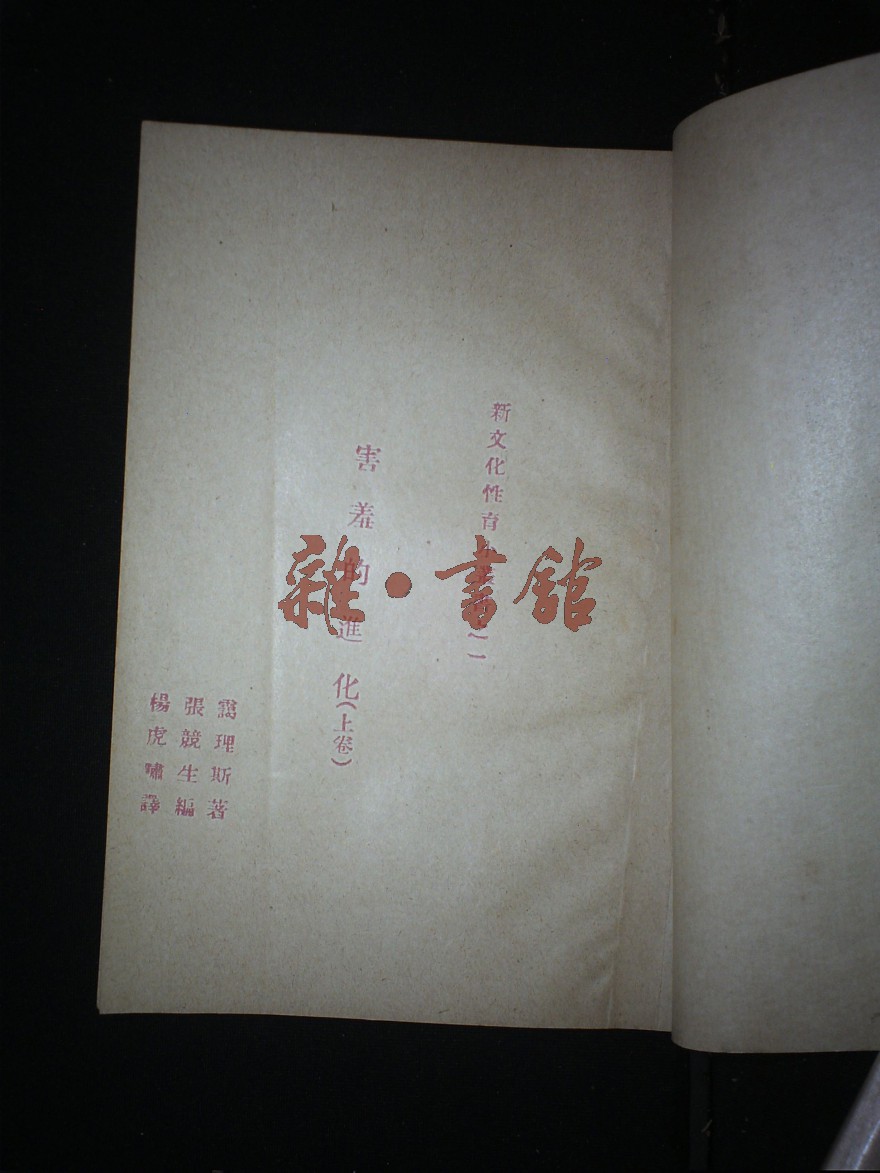 新文化性育小叢書之一
害羞的進化(上卷)
靄理斯著
張競生編
楊虎嘯譯
雜·書館